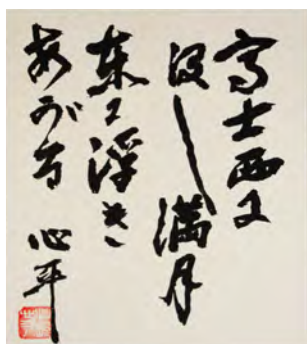 富士西に
没し満月
東に浮き
あがる 心平